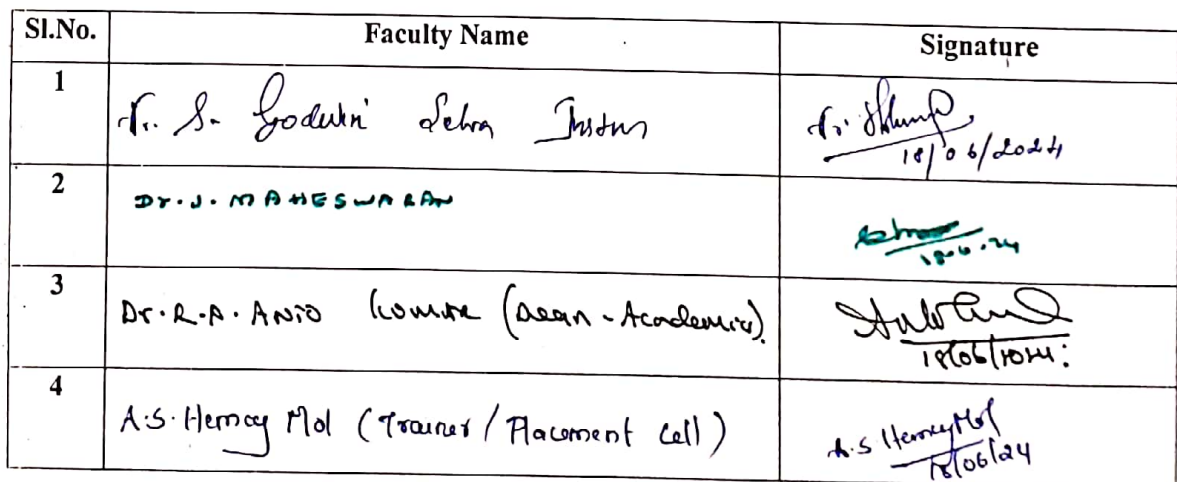 Sl.No. Faculty Name Signature
1 Dr. S. Godwin Selva Justus
18/06/2024
2 Dr. J. MAHESWARAN
18.6.24
3 Dr. R.A. (Dean - Academics).
18/06/2024
4 A.S. Hemcy Mol (Trainer / Placement Cell) A.S Hemcy Mol
18/06/24